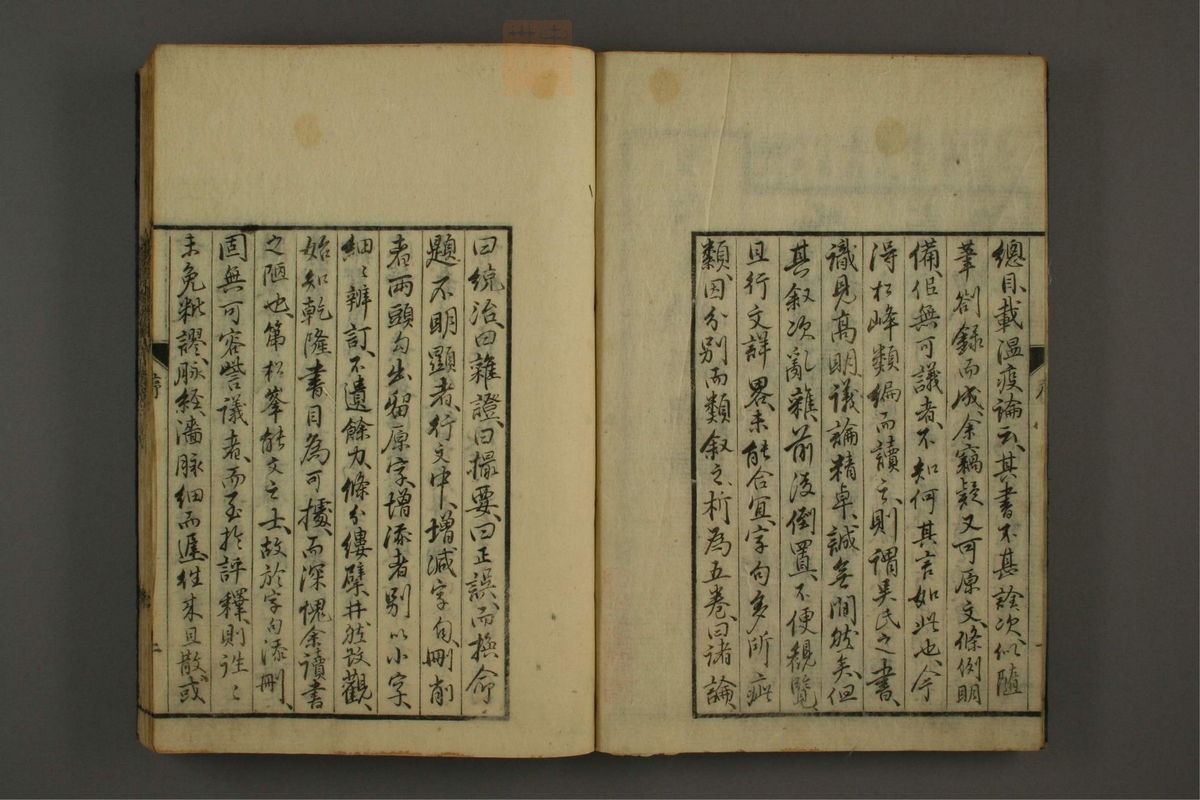 總目載溫疫論云其書不甚詮次似隨
筆劄錄而成余竊疑又可原文條例明
備似無可議者不知何其言如此也今
得松峰類編而讀之則謂吳氏之書
識見高明議論精卓誠無間然矣但
其叙次亂雜前後倒置不便觀覽
且行文詳畧未能合宜字句多所疵
類因分別而類叙之析為五卷曰諸論
曰統治曰雜證曰撮要曰正誤而摠命
題不明顯者行文中增減字句刪削
者兩頭勾出留原字增添者別以小字
細〻辨訂不遺餘力條分縷擘井然改觀
始知乾隆書目為可據而深愧余讀書
之陋也第松峯能文之士故於字句添刪
固無可容訾議者而至於評釋則往〻
未免紕謬脉經濇脉細而遲往來且散或
序
二